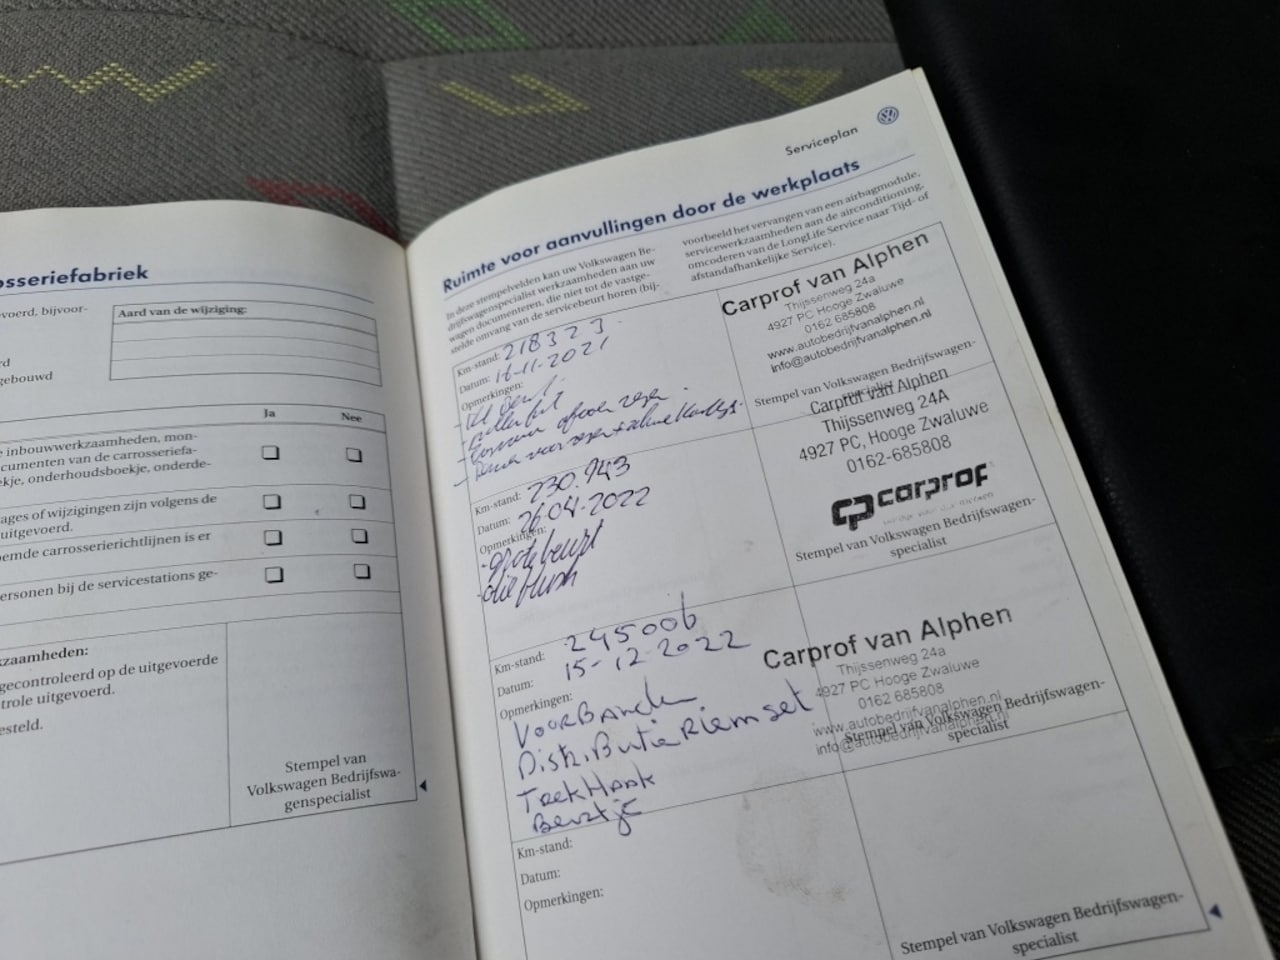 osseriefabriek
evoerd, bijvoor-
rd
gebouwd
Aard van de wijziging:
Ja
Nee
e inbouwwerkzaamheden, mon-
cumenten van de carrosseriefa-
ekje, onderhoudsboekje, onderde-
ages of wijzigingen zijn volgens de
uitgevoerd.
oemde carrosserierichtlijnen is er
ersonen bij de servicestations ge-
kzaamheden:
gecontroleerd op de uitgevoerde
trole uitgevoerd.
esteld.
Stempel van
Volkswagen Bedrijfswa-
genspecialist
Serviceplan
Ruimte voor aanvullingen door de werkplaats
In deze stempelvelden kan uw Volkswagen Be-
drijfswagenspecialist werkzaamheden aan uw
wagen documenteren, die niet tot de vastge-
stelde omvang van de servicebeurt horen (bij-
voorbeeld het vervangen van een airbagmodule,
servicewerkzaamheden aan de airconditioning,
omcoderen van de LongLife Service naar Tijd- of
afstandafhankelijke Service).
Km-stand: 218323
Datum: 16-11-2021
Opmerkingen:
Carprof van Alphen
Thijssenweg 24a
4927 PC Hooge Zwaluwe
0162 685808
www.autobedrijfvanalphen.nl
info@autobedrijfvanalphen.nl
Stempel van Volkswagen Bedrijfswagen-
specialist
Km-stand: 230.943
Datum: 26-04-2022
Opmerkingen:
- grote beurt
- olie flush
Carprof van Alphen
Thijssenweg 24A
4927 PC, Hooge Zwaluwe
0162-685808
cp carprof
Stempel van Volkswagen Bedrijfswagen-
specialist
Km-stand: 245006
Datum: 15-12-2022
Opmerkingen:
VOORBANDEN
DistriButie Riem set
TrekHaak
Beurtje
Carprof van Alphen
Thijssenweg 24a
4927 PC Hooge Zwaluwe
0162 685808
www.autobedrijfvanalphen.nl
info@autobedrijfvanalphen.nl
Stempel van Volkswagen Bedrijfswagen-
specialist
Km-stand:
Datum:
Opmerkingen:
Stempel van Volkswagen Bedrijfswagen-
specialist